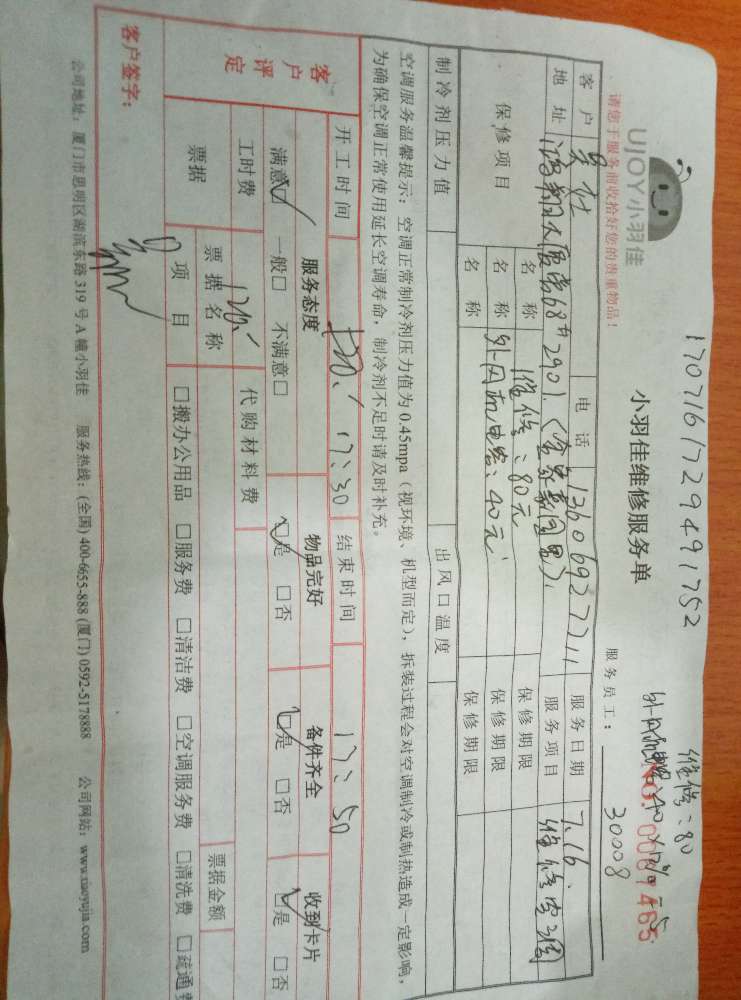 UJOY小羽佳
请您于服务前收拾好您的贵重物品！
17071617294917​52
小羽佳维修服务单
维修：80
外风机电容
NO.
服务员工：30008
客户 吴仕 电话 13606927711 服务日期 7.16.
地址 2901. 服务项目 维修空调
保修项目 名称 维修：80元 保修期限
名称 外风机电容：40元 保修期限
名称 保修期限
制冷剂压力值 出风口温度
空调服务温馨提示：空调正常制冷剂压力值为0.45mpa（视环境、机型而定），拆装过程会对空调制冷或制热造成一定影响，
为确保空调正常使用延长空调寿命，制冷剂不足时请及时补充。
开工时间 17:30 结束时间 17:50
客户评定 服务态度 物品完好 备件齐全 收到卡片
满意☑ 一般□ 不满意□ ☑是 □否 ☑是 □否 ☑是 □否
工时费 120. 代购材料费
票据 票据名称 票据金额
项目 □搬办公用品 □服务费 □清洁费 □空调服务费 □清洗费 □疏通费
客户签字：
公司地址：厦门市思明区湖滨东路319号A幢小羽佳 服务热线：(全国) 400-6655-888 (厦门) 0592-5178888 公司网站：www.xiaoyujia.com